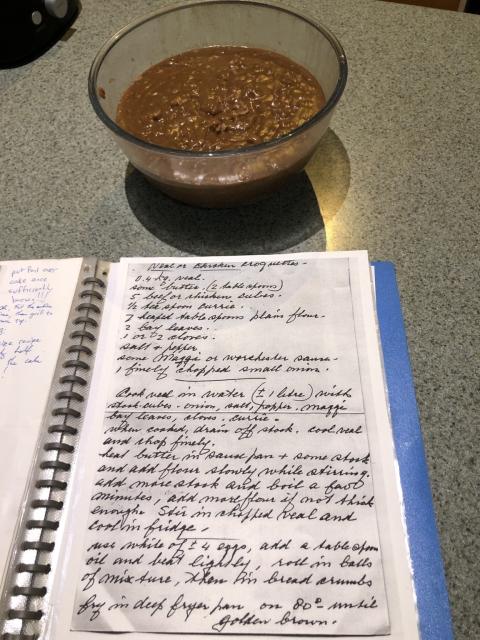 put foil over
cake once
sufficiently
brown!!!
Veal or Chicken Croquettes -
0.4 kg veal.
some butter. (2 table spoons)
5 beef or chicken cubes.
½ tea spoon currie.
7 heaped table spoons plain flour.
2 bay leaves.
1 or 2 cloves.
salt & pepper
some Maggi or worchester sause -
1 finely chopped small onion.
Cook veal in water (± 1 litre) with
stock cubes - onion, salt, pepper, maggi
bay leaves, cloves. currie -
when cooked, drain off stock. cool veal
and chop finely.
heat butter in sause pan + some stock
and add flour slowly while stirring.
add more stock and boil a few
minutes, add more flour if not thick
enough. Stir in chopped veal and
cool in fridge.
use white of ± 4 eggs, add a table spoon
oil and beat lightly, roll in balls
of mixture, then in bread crumbs
fry in deep fryer pan on 80° until
golden brown.